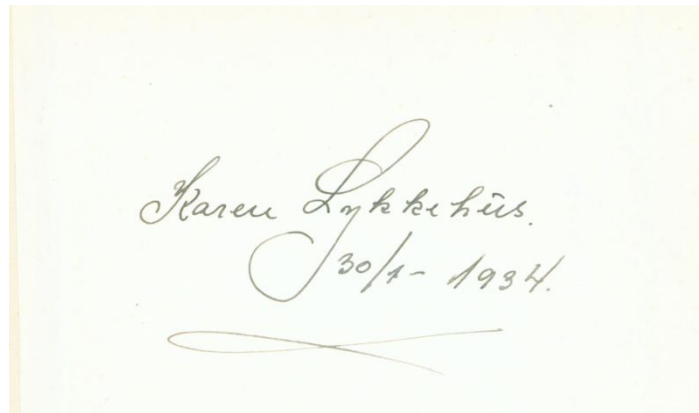 Karen Lykkehus.
30/1- 1934.